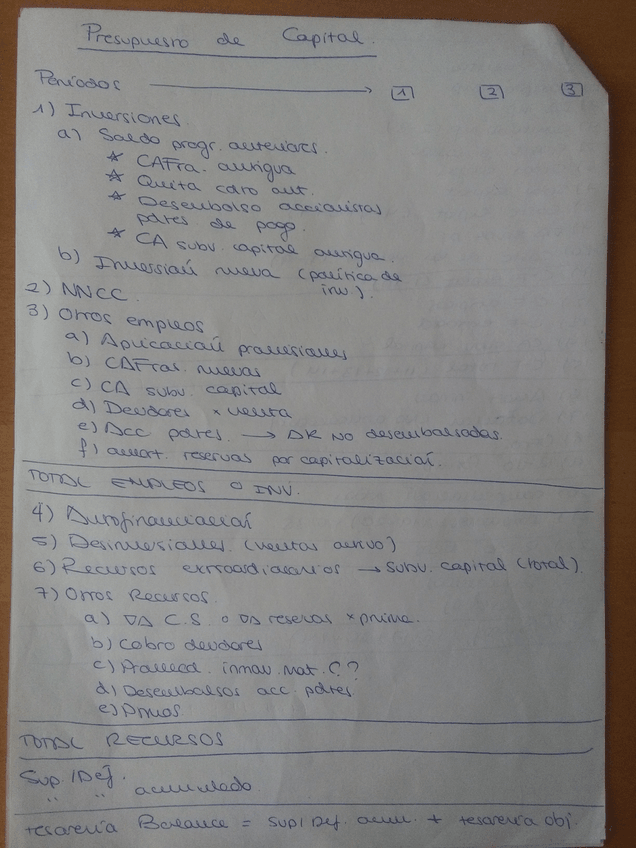 Presupuesto de Capital.
Períodos → 1 2 3
1) Inversiones.
a) Saldo progr. anteriores.
* CAFra. antigua
* Quita cdro ant.
* Desembolso accionistas
pdtes de pago.
* CA subv. capital antigua.
b) Inversión nueva (política de
inv.).
2) NNCC.
3) Otros empleos
a) Aplicación provisiones
b) CAFras. nuevas
c) CA subv. capital
d) Deudores x venta
e) Acc pdtes. → AK no desembolsadas.
f) amort. reservas por capitalización.
TOTAL EMPLEOS O INV.
4) Autofinanciación
5) Desinversiones (ventas activo)
6) Recursos extraordinarios → subv. capital (total).
7) Otros Recursos.
a) C.S. o reservas x prima.
b) Cobro deudores
c) Proveed. inmov. mat. ??
d) Desembolsos acc. pdtes
e) Pmos
TOTAL RECURSOS
Sup./Def.
" " acumulado
tesorería Balance = sup/Def. acum. + tesorería obj.